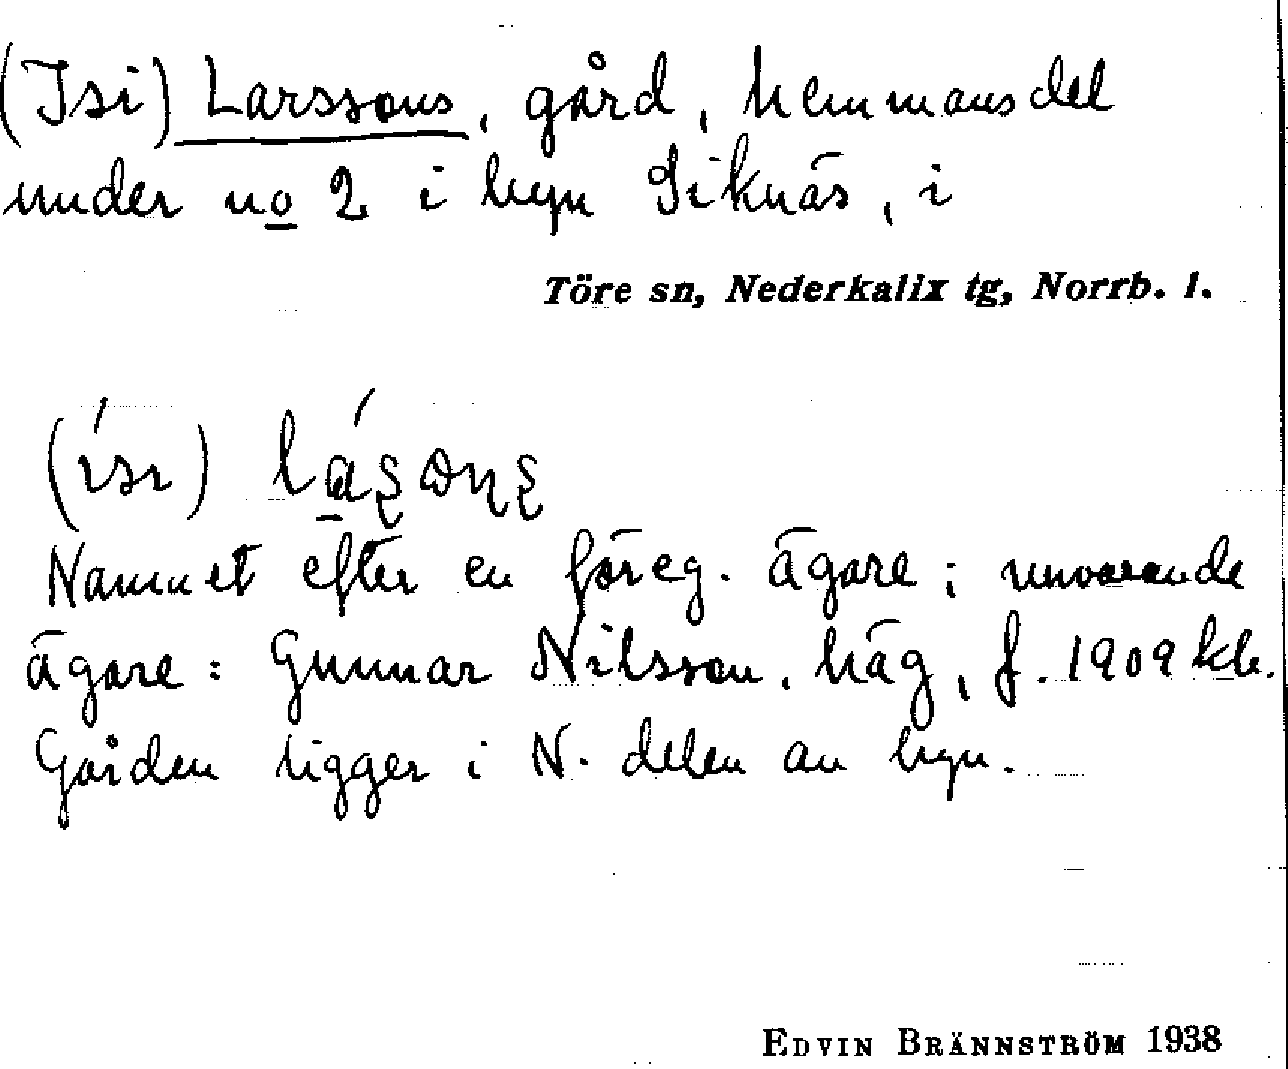 (Isi) Larssons, gård, hemmansdel
under no 2 i byn Siknäs, i
Töre sn, Nederkalix tg, Norrb. l.
(ísı)
Namnet efter en föreg. ägare; nuvarande
ägare: Gunnar Nilsson, häg, f. 1909
Gården ligger i N. delen av byn.
EDVIN BRÄNNSTRÖM 1938